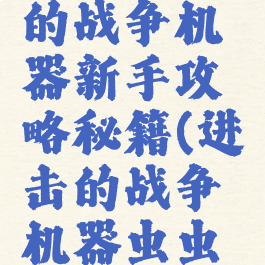 的战争机
器新手攻
略秘籍(进
击的战争
机器虫虫